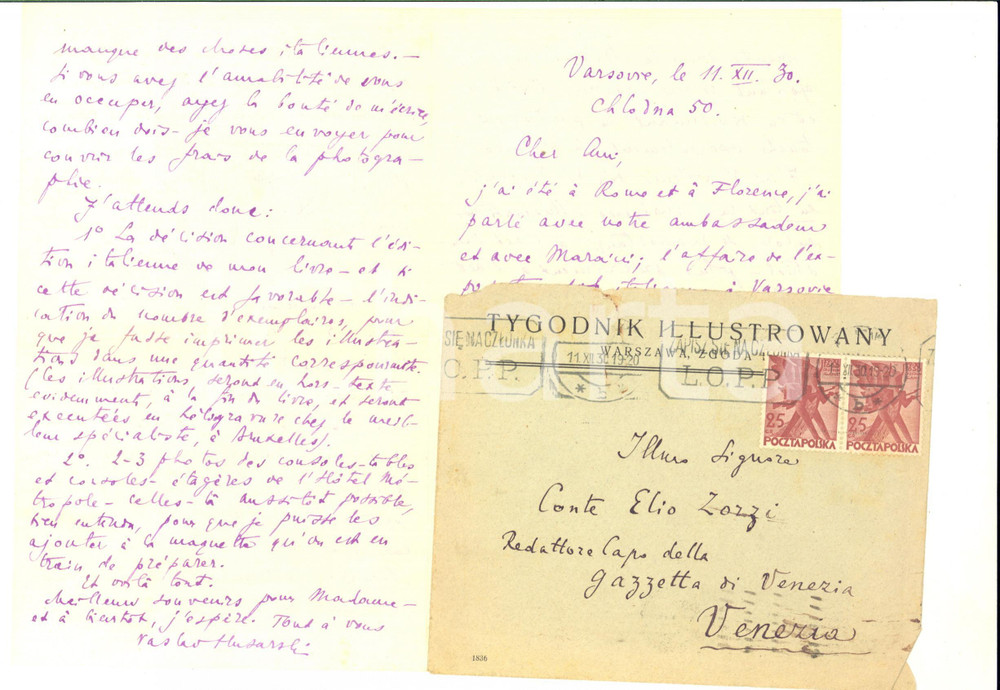 manque des choses italiennes.—
Si vous avez l'amabilité de vous
en occuper, ayez la bonté de m'écrire,
combien dois-je vous envoyer pour
couvrir les frais de la photogra-
phie.
J'attends donc:
1º La décision concernant l'édi-
tion italienne de mon livre – et si
cette décision est favorable – l'indi-
cation du nombre d'exemplaires, pour
que je fasse imprimer les illustra-
tions dans une quantité correspondante
(les illustrations seront en hors-texte
évidemment, à la fin du livre, et seront
exécutées en héliogravure chez le meil-
leur spécialiste, à Bruxelles).
2º. 2-3 photos des consoles-tables
et consoles-étagères de l'Hôtel Mé-
tropole – celles-là aussitôt possible,
bien entendu, pour que je puisse les
ajouter à la maquette qu'on est en
train de préparer.
Et voilà tout.
Meilleurs souvenirs pour Madame –
et à bientôt, j'espère. Tout à vous
Vaslav Husarski
Varsovie, le 11. XII. 30.
Chlodna 50.
Cher Ami,
j'ai été à Rome et à Florence, j'ai
parlé avec notre ambassadeur
et avec Maraini; l'affaire de l'ex-
à Varsovie
TYGODNIK ILLUSTROWANY
WARSZAWA, ZGODA
SIĘ NA CZŁONKA
L.O.P.P.
11.XII.30.19-20
ZAPISZ SIĘ NA CZŁONKA
L.O.P.P.
25 25
POCZTA POLSKA POCZTA POLSKA
Illmo Signore
Conte Elio Zorzi
Redattore Capo della
Gazzetta di Venezia
Venezia
1836